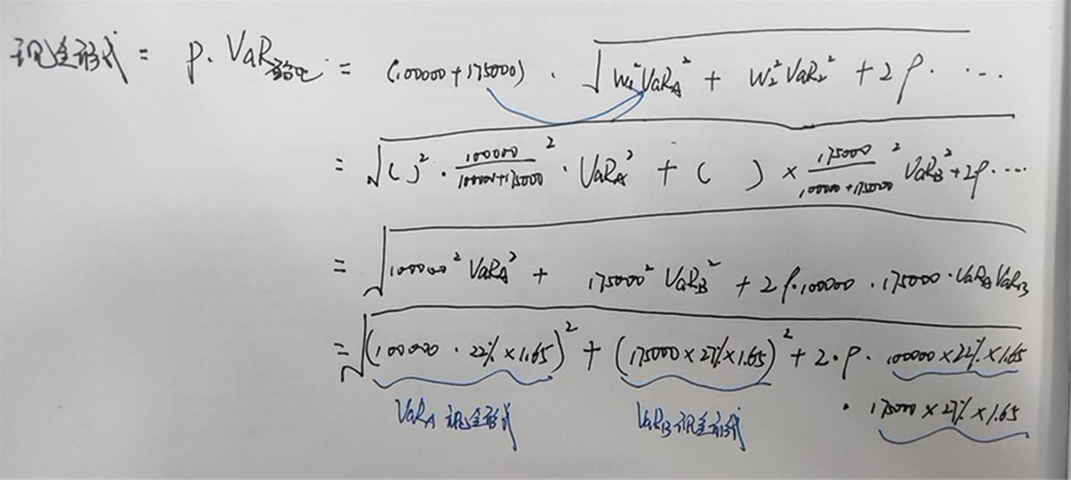 现金形式 = P · VaR总百分比 = (100000+175000) · √(W₁²VaR_A² + W₂²VaR₂² + 2ρ· ···
= √(( )² · 100000/100000+175000 ² · VaR_A² + ( ) × 175000/100000+175000 ² VaR_B² + 2ρ· ···
= √(100000² VaR_A² + 175000² VaR_B² + 2ρ·100000 · 175000 · VaR_A VaR_B
= √((100000 · 22% × 1.65)² + (175000×27%×1.65)² + 2·ρ · 100000×22%×1.65
· 175000×27%×1.65
VaR_A 现金形式 VaR_B 现金形式